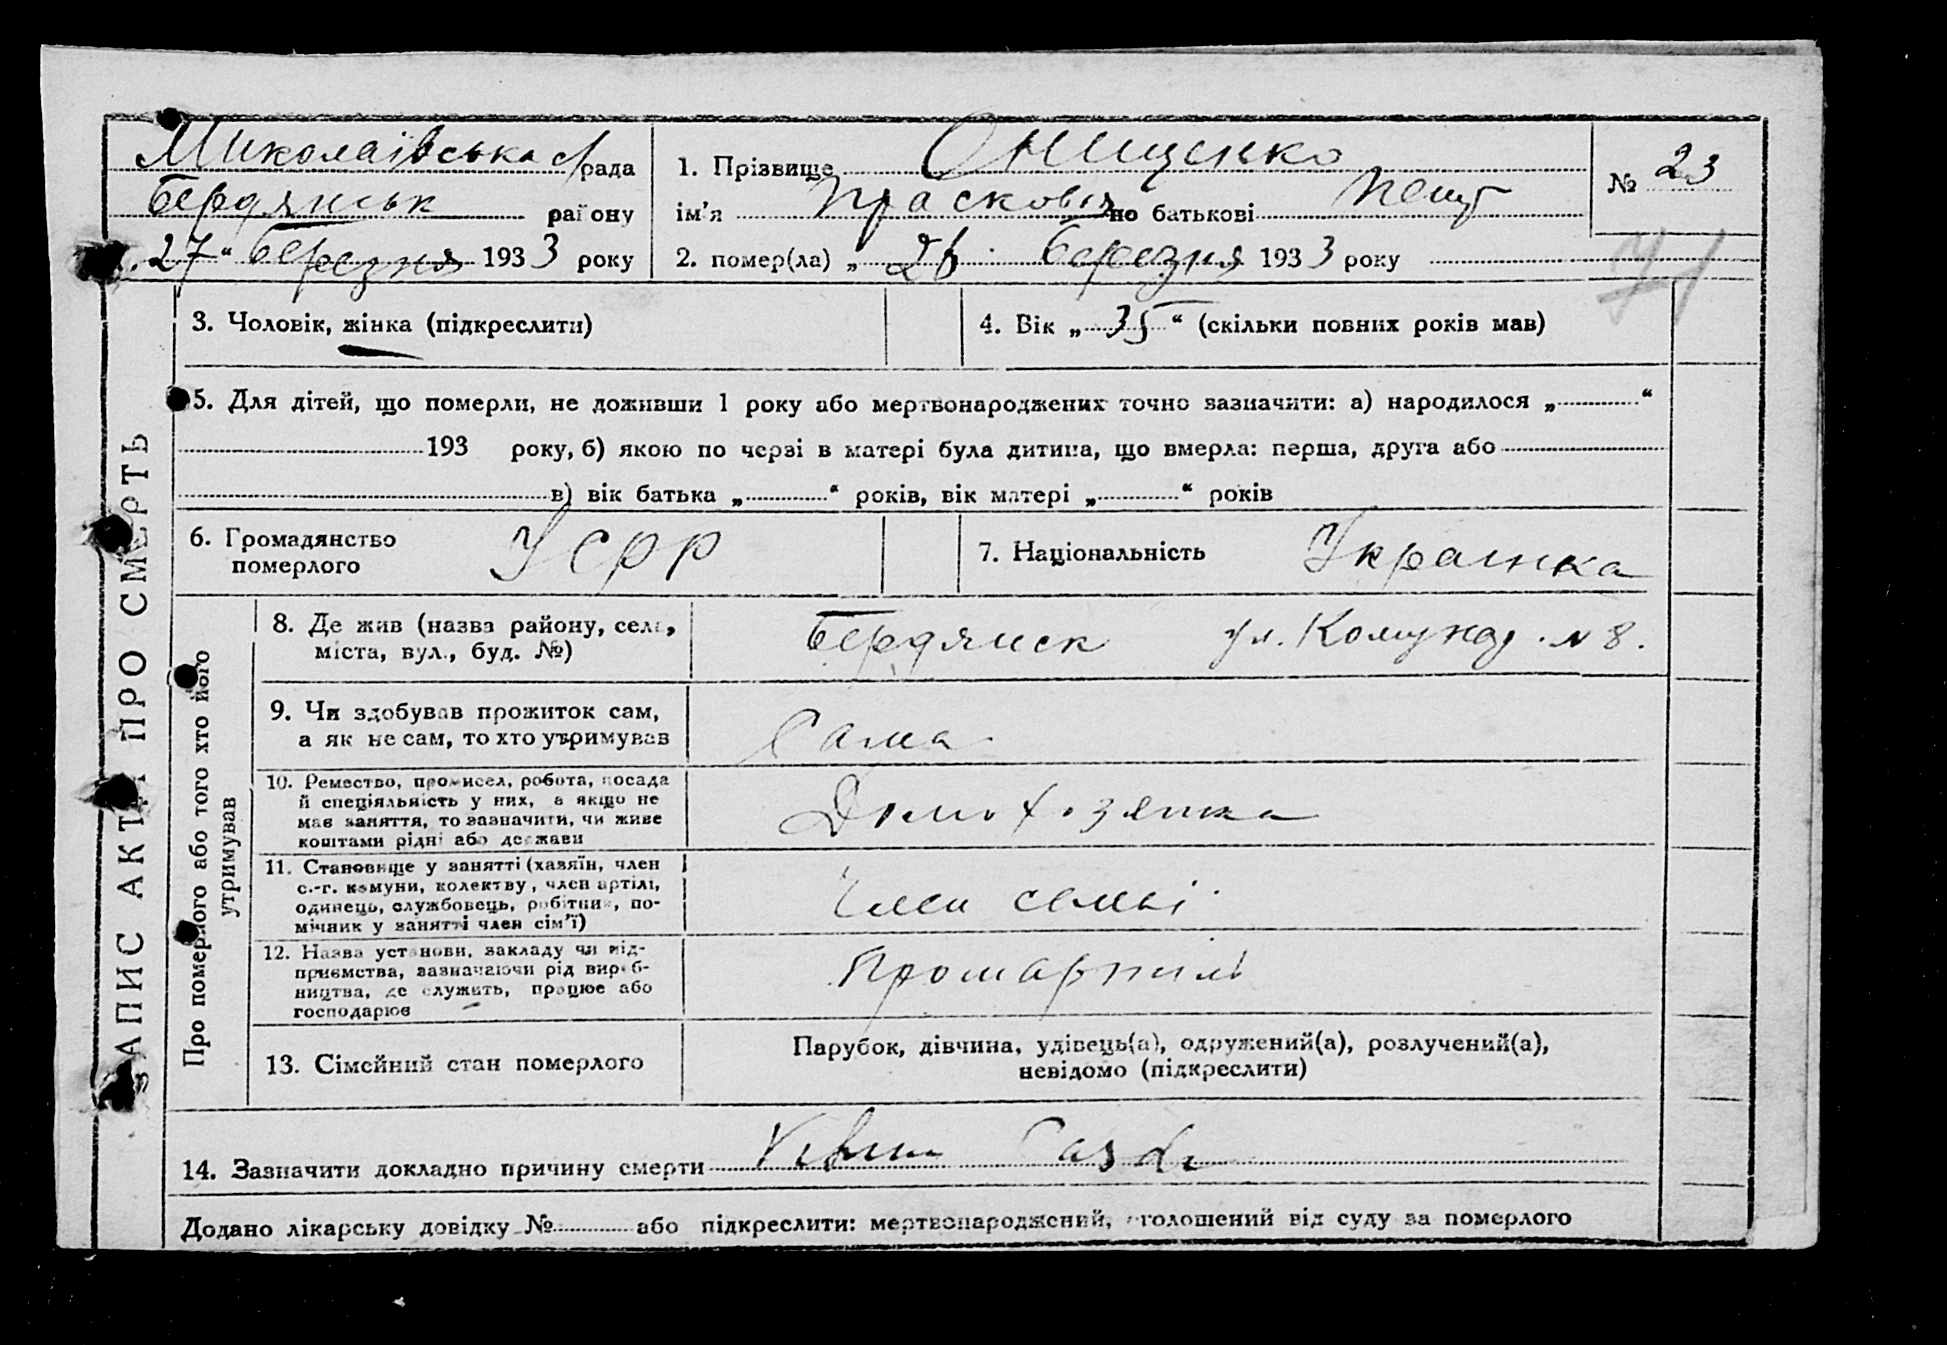 ЗАПИС АКТУ ПРО СМЕРТЬ
Миколаївська с/рада
Бердянськ району
"27" Березня 1933 року
1. Прізвище Онищенко
ім'я Прасковія по батькові
2. помер(ла) „ 26 Березня 1933 року
№ 23
3. Чоловік, жінка (підкреслити)
4. Вік „ 35 “ (скільки повних років мав)
5. Для дітей, що померли, не доживши 1 року або мертвонароджених точно зазначити: а) народилося „ “
193 року, б) якою по черзі в матері була дитина, що вмерла: перша, друга або
в) вік батька „ “ років, вік матері „ “ років
6. Громадянство
померлого
УСРР
7. Національність Украінка
Про померлого або того хто його
утримував
8. Де жив (назва району, села,
міста, вул., буд. №)
Бердянск ул. Комунар. № 8.
9. Чи здобував прожиток сам,
а як не сам, то хто утримував
Сама
10. Ремество, промисел, робота, посада
й спеціяльність у них, а якщо не
мав заняття, то зазначити, чи живе
коштами рідні або держави
Домохозяика
11. Становище у занятті (хазяїн, член
с.-г. комуни, колективу, член артілі,
одинець, службовець, робітник, по-
мічник у занятті член сім'ї)
Член семьі
12. Назва установи, закладу чи під-
приємства, зазначаючи рід вироб-
ництва, де служить, працює або
господарює
Промартиль
13. Сімейний стан померлого
Парубок, дівчина, удівець(а), одружений(а), розлучений(а),
невідомо (підкреслити)
14. Зазначити докладно причину смерти
Додано лікарську довідку № або підкреслити: мертвонароджений, оголошений від суду за померлого